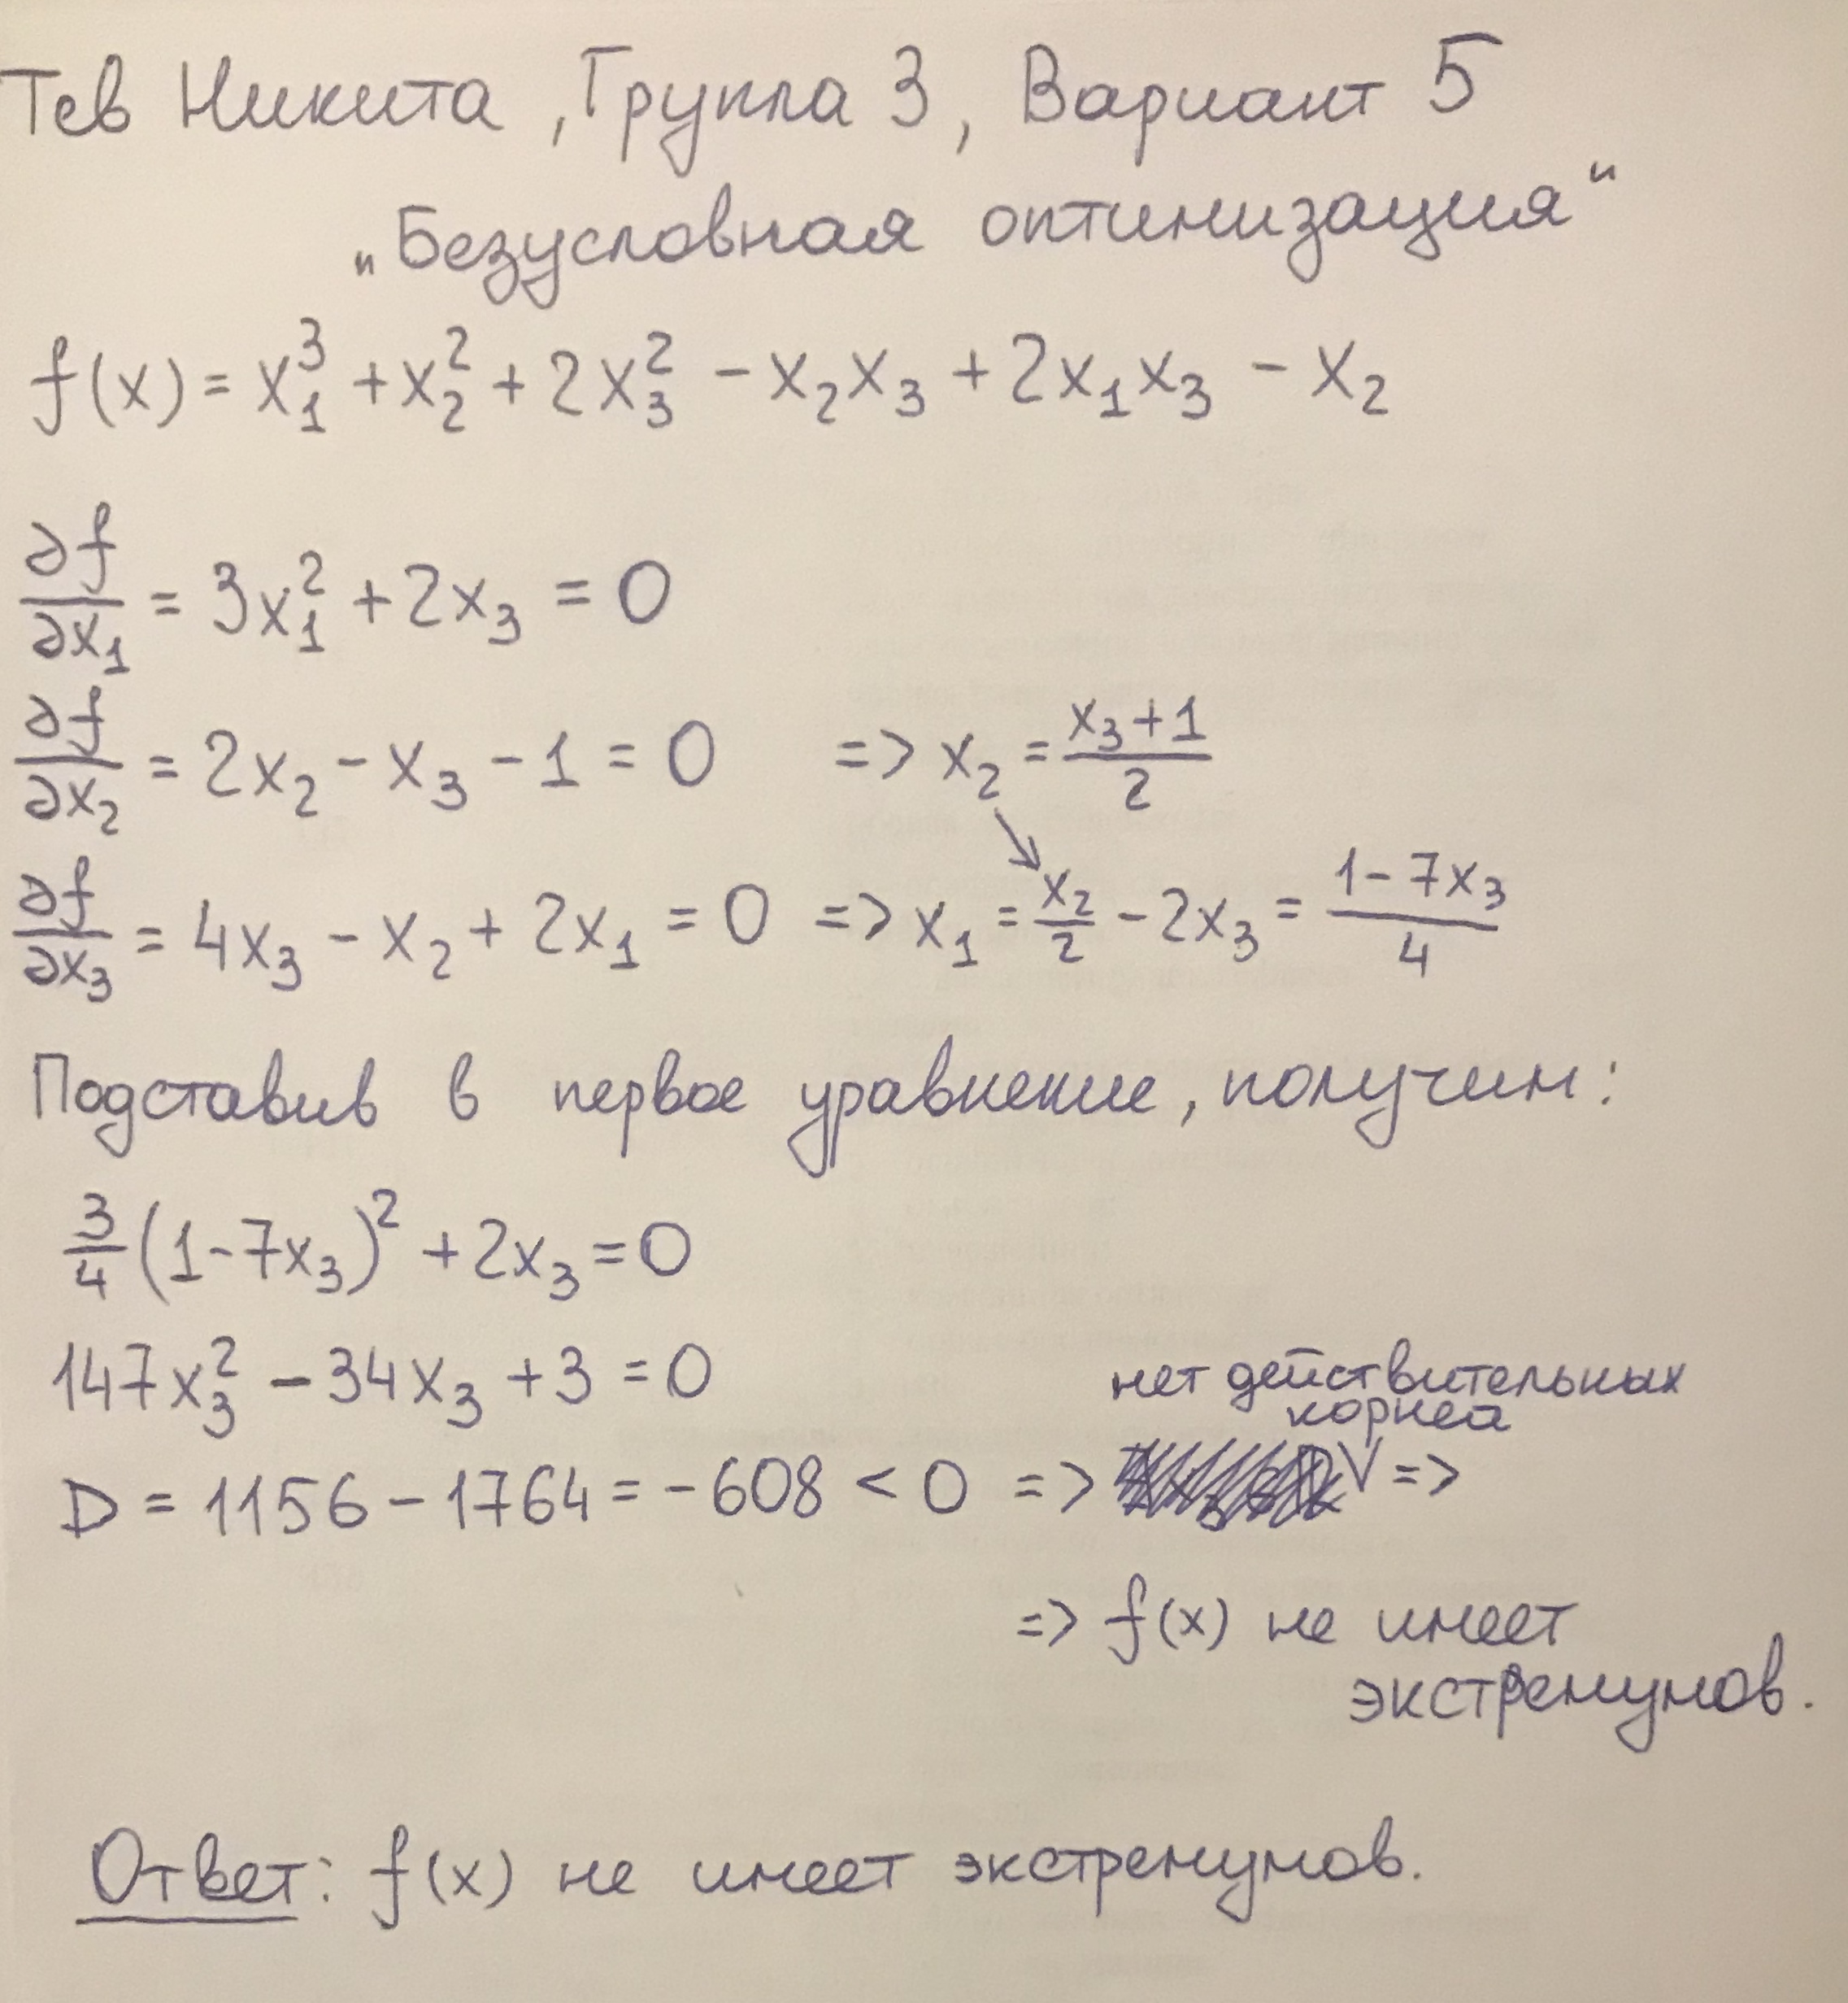 Тев Никита, Группа 3, Вариант 5
„Безусловная оптимизация“
f(x) = x₁³ + x₂² + 2x₃² - x₂x₃ + 2x₁x₃ - x₂
∂f/∂x₁ = 3x₁² + 2x₃ = 0
∂f/∂x₂ = 2x₂ - x₃ - 1 = 0 => x₂ = (x₃+1)/2
∂f/∂x₃ = 4x₃ - x₂ + 2x₁ = 0 => x₁ = x₂/2 - 2x₃ = (1-7x₃)/4
Подставив в первое уравнение, получим:
3/4 (1-7x₃)² + 2x₃ = 0
147x₃² - 34x₃ + 3 = 0
нет действительных
корнеа
D = 1156 - 1764 = -608 < 0 => V =>
=> f(x) не имеет
экстремумов.
Ответ: f(x) не имеет экстремумов.